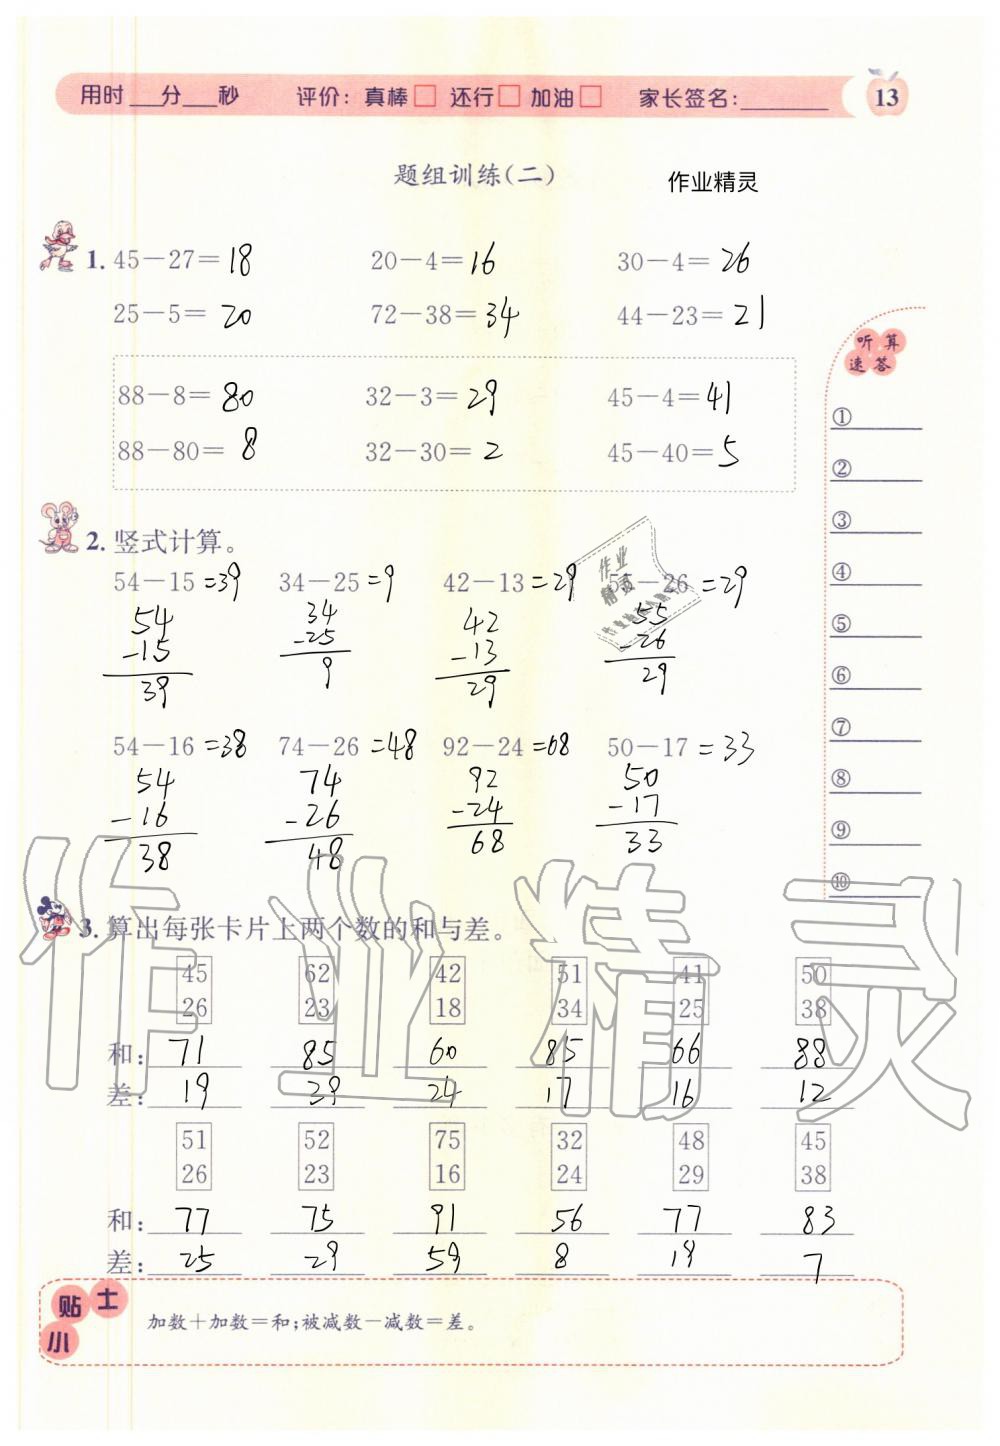 用时___分___秒 评价：真棒□ 还行□ 加油□ 家长签名：________ 13
题组训练（二） 作业精灵
1. 45－27＝18 20－4＝16 30－4＝26
25－5＝20 72－38＝34 44－23＝21
88－8＝80 32－3＝29 45－4＝41
88－80＝8 32－30＝2 45－40＝5
听算
速答
①
②
③
④
⑤
⑥
⑦
⑧
⑨
⑩
2. 竖式计算。
54－15=39 34－25=9 42－13=29 55－26=29
54 34 42 55
-15 -25 -13 -26
39 9 29 29
54－16=38 74－26=48 92－24=68 50－17=33
54 74 92 50
-16 -26 -24 -17
38 48 68 33
3. 算出每张卡片上两个数的和与差。
45 62 42 51 41 50
26 23 18 34 25 38
和: 71 85 60 85 66 88
差: 19 39 24 17 16 12
51 52 75 32 48 45
26 23 16 24 29 38
和: 77 75 91 56 77 83
差: 25 29 59 8 19 7
小贴士
加数＋加数＝和；被减数－减数＝差。
作业精灵
作业
精灵